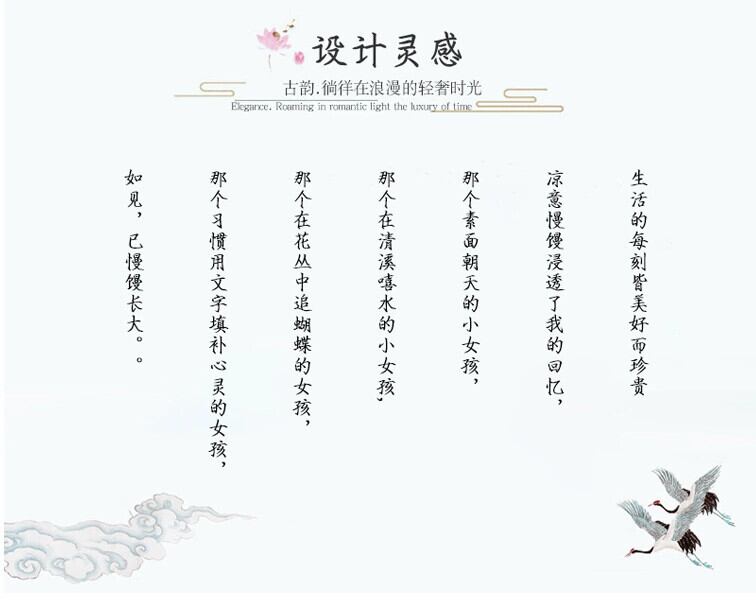 设计灵感
古韵.徜徉在浪漫的轻奢时光
Elegance. Roaming in romantic light the luxury of time
生活的每刻皆美好而珍贵
凉意慢馒浸透了我的回忆，
那个素面朝天的小女孩，
那个在清溪嘻水的小女孩，
那个在花丛中追蝴蝶的女孩，
那个习惯用文字填补心灵的女孩，
如见，已慢馒长大。。